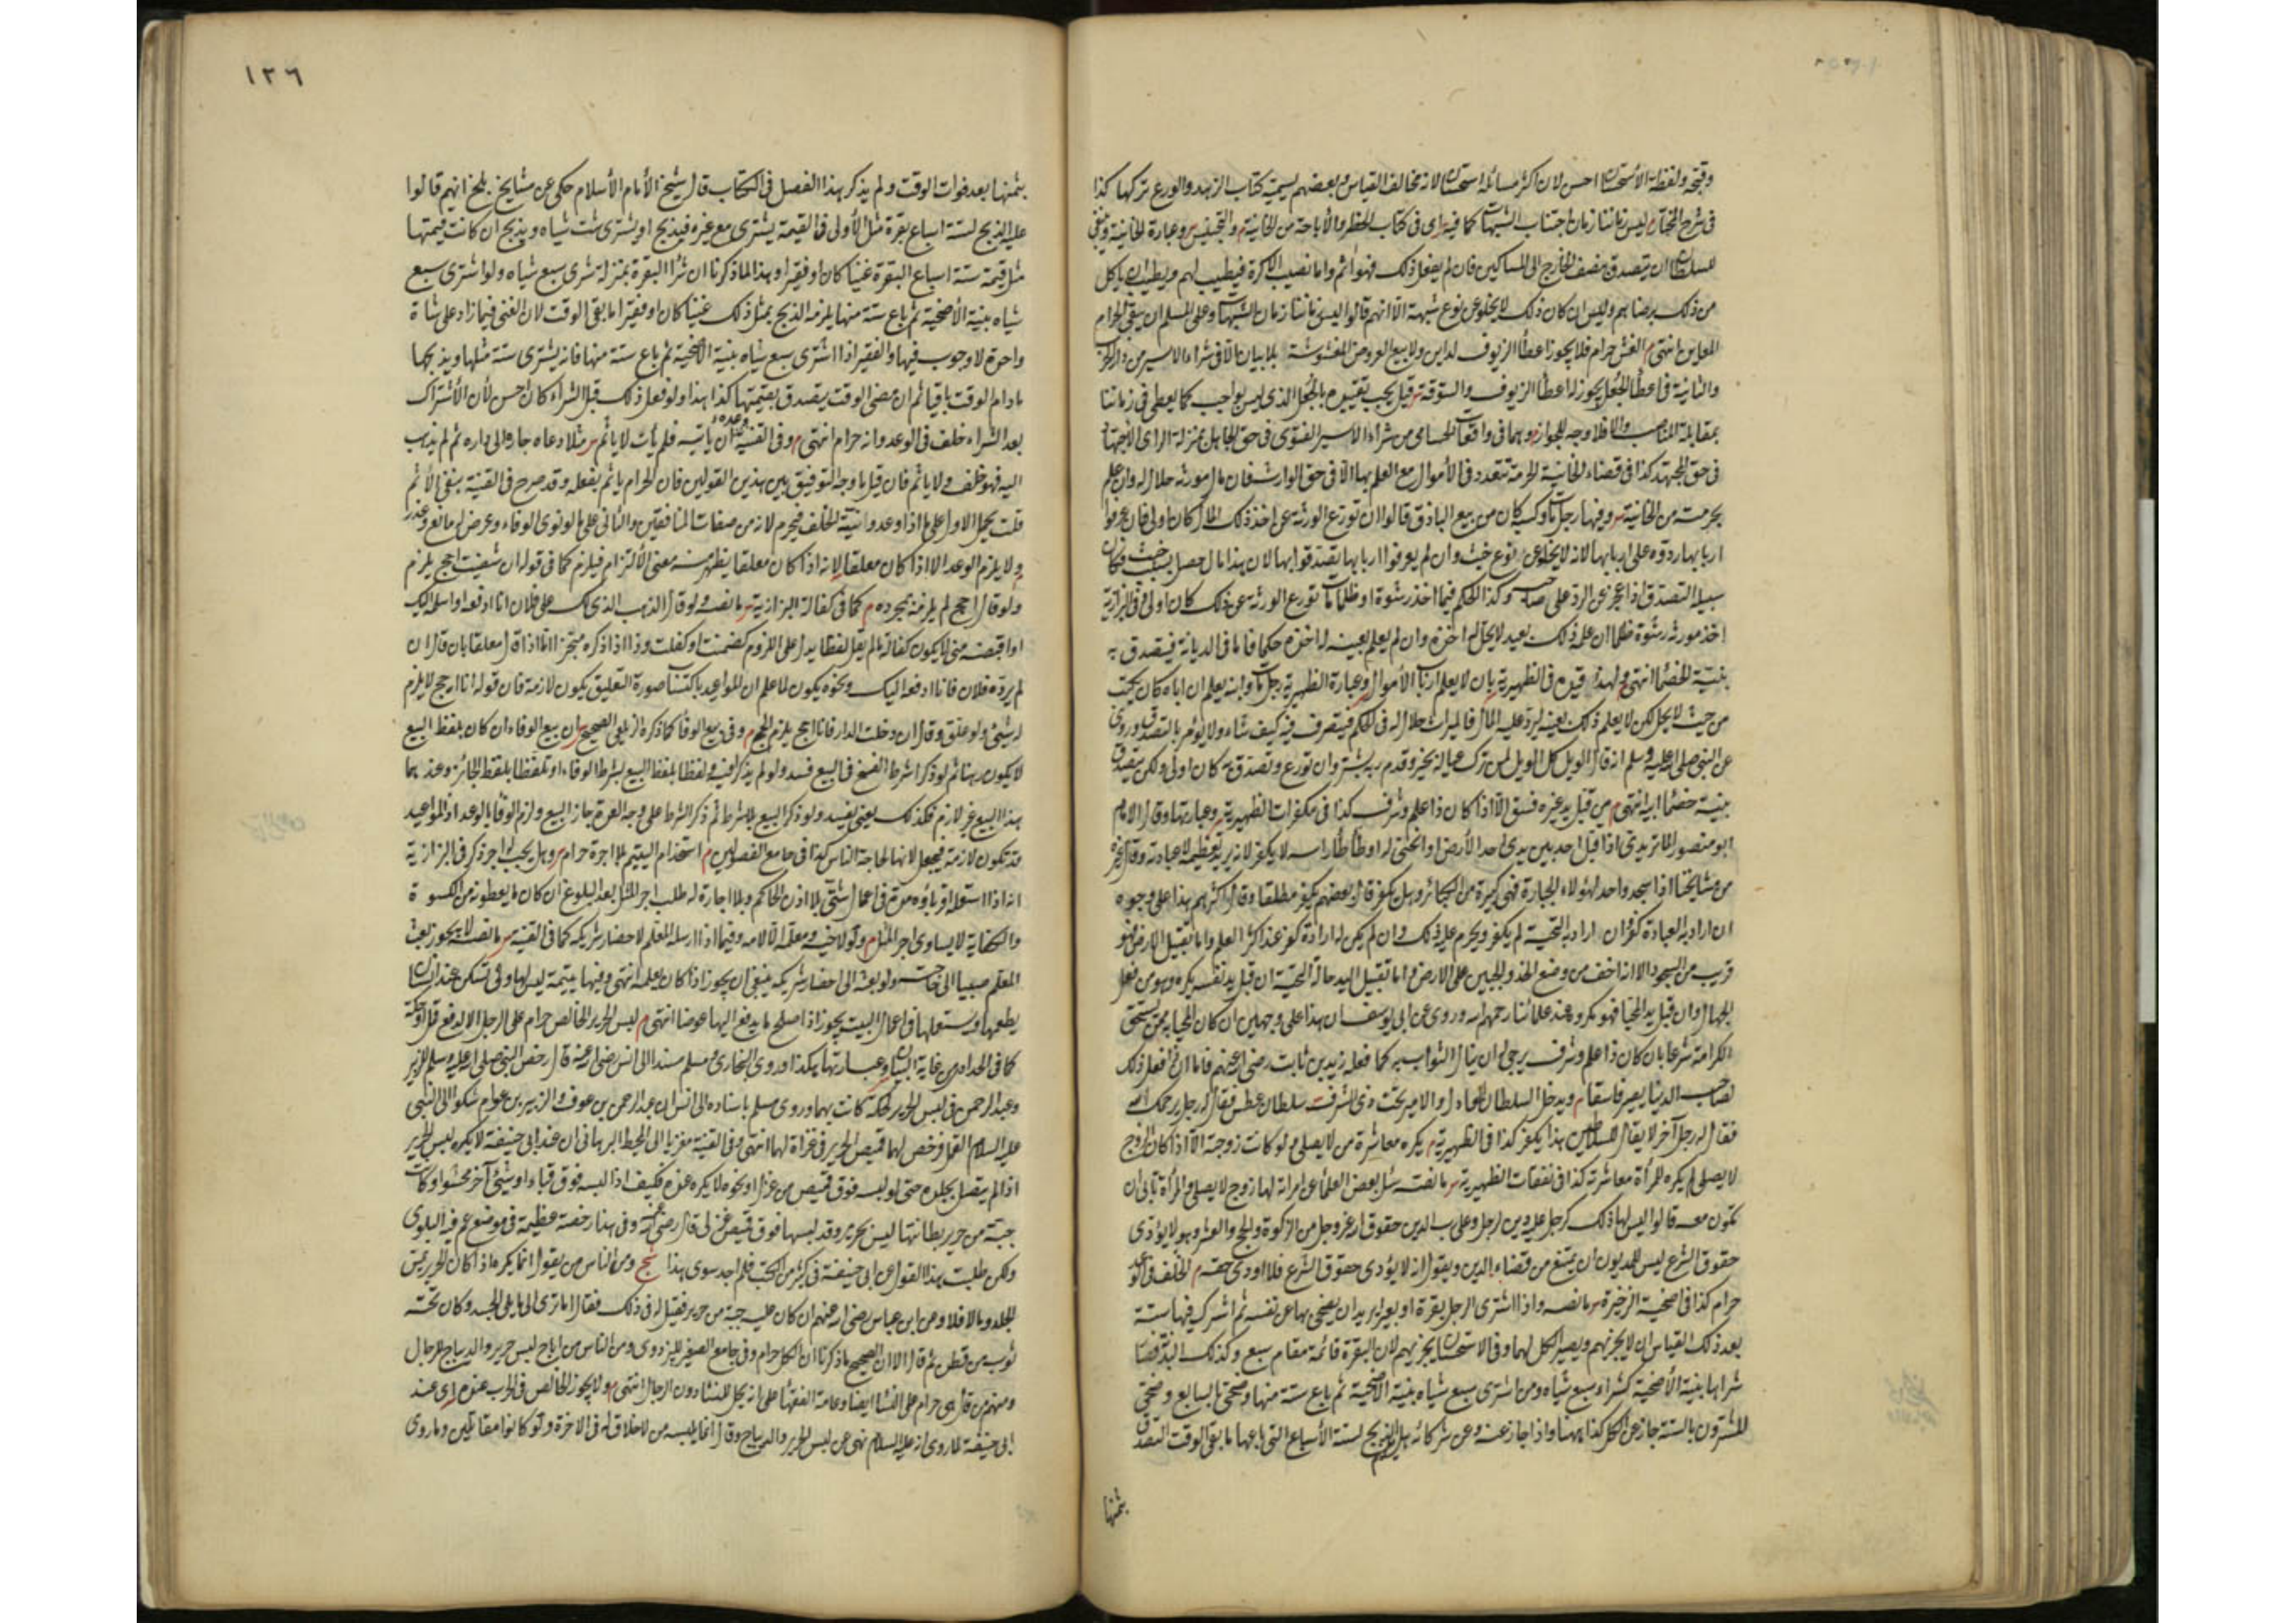 وقبحه ولفظة الاستحسان احسن لان اكثر مسائله استحسان لانه مخالف القياس وبعضهم يسميه كتاب الزهد والورع تركها كذا
في شرح المختار م ليس زماننا زمان اجتناب الشبهات كما فيه اى في كتاب الحظر والاباحة من الخانية م والتجنيس وعبارة الخانية وينبغي
للسلطان ان يتصدق بنصف الخارج الى المساكين فان لم يفعل ذلك فهو اثم واما نصيب الاكرة فيطيب لهم ويطيب لمن ياكل
من ذلك برضاهم وليس ان كان ذلك لا يخلو عن نوع شبهة الا انهم قالوا ليس زماننا زمان الشبهات وعلى المسلم ان يتقي الحرام
المعاين انتهى م الغش حرام فلا يجوز اعطاء الزيوف لداين ولا بيع العروض المغشوشة بلا بيان الا في شراء الاسير من دار الحرب
والثانية في اعطاء الجعل يجوز له اعطاء الزيوف والستوقة قيل يجب تقييده بالجعل الذى ليس بواجب كما يعطى في زماننا
بمقابلة المناصب والا فلا وجه للجواز وهما في واقعات الحسامي من شراء الاسير الفتوى في حق الجاهل بمنزلة الراى الاجتهاد
في حق المجتهد كذا في قضاء الخانية الحرمة تتعدد في الاموال مع العلم بها الا في حق الوارث فان مال مورثه حلال له وان علم
بحرمته من الخانية وفيها رجل مات وكسبه كان من بيع الباذق قالوا ان تورع الورثة عن اخذ ذلك المال كان اولى فان عرفوا
اربابها ردوه على اربابها لانه لا يخلو عن نوع خبث وان لم يعرفوا اربابها تصدقوا بها لان هذا مال حصل بسبب خبث فكان
سبيله التصدق اذا عجز عن الرد على صاحبه وكذا الحكم فيما اخذ رشوة او ظلما ان تورع الورثة عن ذلك كان اولى وفي البزازية
اخذ مورثه رشوة ظلما ان علم ذلك بعينه لا يحل له اخذه وان لم يعلم بعينه له اخذه حكما فاما في الديانة فيتصدق به
بنية الخصماء انتهى ولهذا قيده في الظهيرية بان لا يعلم ارباب الاموال وعبارة الظهيرية رجل مات وابنه يعلم ان اباه كان يكتسب
من حيث لا يحل لكن لا يعلم ذلك بعينه ليرد عليه المال فالميراث حلال له في الحكم فيتصرف فيه كيف شاء ولا يؤمر بالتصدق وروى
عن النبي صلى الله عليه وسلم انه قال الويل كل الويل لمن ترك عياله بخير وقدم ربه بشر وان تورع وتصدق به كان اولى ولكن يتصدق
بنية خصماء ابيه انتهى م من قبل يد غيره فسق الا اذا كان ذا علم وشرف كذا في مكفرات الظهيرية وعبارتها وقال الامام
ابو منصور الماتريدي اذا قبل احد بين يدى احد الارض او انحنى له او طأطأ راسه لا يكفر لانه يريد تعظيمه لا عبادته وقال غيره
من مشايخنا اذا سجد واحد لهؤلاء الجبابرة فهي كبيرة من الكبائر وهل يكفر قال بعضهم يكفر مطلقا وقال اكثرهم هذا على وجوه
ان اراد به العبادة كفر وان اراد به التحية لم يكفر ويحرم عليه ذلك وان لم يكن له ارادة كفر عند اكثر العلم واما تقبيل الارض فهو
قريب من السجود الا انه اخف من وضع الخد والجبين على الارض واما تقبيل اليد حالة التحية ان قبل يد نفسه يكره وهو من فعل
الجهال وان قبل يد المحيا فهو مكروه عند علمائنا رحمهم الله وروى عن ابي يوسف ان هذا على وجهين ان كان المحيا به ممن يستحق
الكرامة شرعا بان كان ذا علم وشرف يرجى له ان ينال الثواب به كما فعله زيد بن ثابت رضي الله عنهم فاما ان فعل ذلك
لصاحب الدنيا يصير فاسقا م ويدخل السلطان العادل والامير تحت ذى الشرف سلطان عطس فقال له رجل يرحمك الله
فقال له رجل آخر لا يقال للسلاطين هذا يكفر كذا في الظهيرية م يكره معاشرة من لا يصلي ولو كانت زوجته الا اذا كان الزوج
لا يصلي لم يكره للمرأة معاشرته كذا في نفقات الظهيرية ما نصه سئل بعض العلماء عن امرأة لها زوج لا يصلي والمرأة تأبى ان
تكون معه قالوا ليس لها ذلك كرجل عليه دين لرجل وعلى رب الدين حقوق الله عز وجل من الزكوة والحج والعشر وهو لا يؤدى
حقوق الشرع ليس للمديون ان يمتنع من قضاء الدين ويقول انه لا يؤدى حقوق الشرع فلا اودى حقه م الخلف في الوعد
حرام كذا في اضحية الذخيرة ما نصه واذا اشترى الرجل بقرة او بعيرا يريد ان يضحى بها عن نفسه ثم اشرك فيها ستة
بعد ذلك القياس ان لا يجزيهم ويصير الكل لهما وفي الاستحسان يجزيهم لان البقرة قائمة مقام سبع وكذلك البدنة فصار
شراها بنية الاضحية كشراء سبع شياه ومن اشترى سبع شياه بنية الاضحية ثم باع ستة منها وضحى بالسابع وضحى
المشترون بالستة جاز عن الكل كذا ههنا واذا جاز عنه وعن شركائه هل يلزمه الذبح لستة الاسباع التي باعها ما بقي الوقت التصدق
بثمنها
١٢٦
بثمنها بعد فوات الوقت ولم يذكر هذا الفصل في الكتاب قال شيخ الامام الاسلام حكى عن مشايخ بلخ انهم قالوا
عليه الذبح لستة اسباع بقرة مثل الاولى في القيمة يشترى مع غيره فيذبح او يشترى ست شياه ويذبح ان كانت قيمتها
مثل قيمة ستة اسباع البقرة غنيا كان او فقيرا وهذا لما ذكرنا ان شراء البقرة بمنزلة شرى سبع شياه ولو اشترى سبع
شياه بنية الاضحية ثم باع ستة منها يلزمه الذبح بمثل ذلك غنيا كان او فقيرا ما بقي الوقت لان الغنى فيما زاد على شاة
واحدة لا وجوب فيها والفقير اذا اشترى سبع شياه بنية الاضحية ثم باع ستة منها فانه يشترى ستة مثلها ويذبحها
ما دام الوقت باقيا ثم ان مضى الوقت يتصدق بقيمتها كذا هذا ولو فعل ذلك قبل الشراء كان احسن لان الاشتراك
بعد الشراء خلف في الوعد وانه حرام انتهى م وفي القنية وعده ان يأتيه فلم يأت لا يأثم مثلا دعاه جاره الى داره ثم لم يذهب
اليه فهو خلف ولا يأثم فان قيل ما وجه التوفيق بين هذين القولين فان الحرام يأثم بفعله وقد صرح في القنية بنفي الاثم
قلت يحمل الاول على ما اذا وعد وانية الخلف فيحرم لانه من صفات المنافقين والثاني على ما لو نوى الوفاء وعرض له مانع وعذر
ولا يلزم الوعد الا اذا كان معلقا لانه اذا كان معلقا يظهر منه معنى الالتزام فيلزم كما في قوله ان شفيت احج يلزم
ولو قال احج لم يلزمه بمجرده م كما في كفالة البزازية ما نصه ولو قال الذهب الذى لك على فلان انا ادفعه او اسلمه اليك
او اقبضه مني لا يكون كفالة ما لم يقل لفظا يدل على اللزوم كضمنت او كفلت وذا اذا ذكره منجزا اما اذا قال معلقا بان قال ان
لم يرده فلان فانا ادفعه اليك ونحوه يكون لما علم ان المواعيد باكتساب صورة التعليق يكون لازمة فان قوله انا احج لا يلزم
له شيئ ولو علق وقال ان دخلت الدار فانا احج يلزم الحج م وفي بيع الوفاء كما ذكره الزيلعي الصحيح ان بيع الوفاء ان كان بلفظ البيع
لا يكون رهنا ثم لو ذكرا شرط الفسخ في البيع فسد ولو لم يذكراه فيه ولفظا بلفظ البيع بشرط الوفاء او تلفظا بلفظ الجائز وعندهما
هذا البيع غير لازم فكذلك يعني يفسد ولو ذكرا البيع بلا شرط ثم ذكر الشرط على وجه العدة جاز البيع ولزم الوفاء بالوعد اذ المواعيد
قد تكون لازمة فيجعل لانها لحاجة الناس كذا في جامع الفصولين م استخدام اليتيم بلا اجرة حرام وهل يجب له اجر ذكر في البزازية
انه اذا استعمله اقرباؤه مدة في اعمال شتى بلا اذن الحاكم وبلا اجارة له طلب اجر المثل بعد البلوغ ان كان ما يعطونه من الكسوة
والكفاية لا يساوى اجر المثل م ولو لاخيه ومعلمه الا لامه وفيما اذا ارسله المعلم لاحضار شريكه كما في القنية ما نصه لا يجوز بعث
المعلم صبيا الى حاجته ولو بعثه الى احضار شريكه ينبغي ان يجوز اذا كان يعلمه انتهى وفيها يتيمة ليس لها ماوى تسكن عند انسان
يطعمها ويستعملها في اعمال البيت يجوز اذا صلح ما يدفع اليها عوضا انتهى م لبس الحرير الخالص حرام على الرجل الا لدفع قمل او حكة
كما في الحدادى من غاية البيان وعبارتها هكذا وروى البخارى ومسلم مسندا الى انس رضي الله عنه قال رخص النبي صلى الله عليه وسلم للزبير
وعبد الرحمن في لبس الحرير لحكة كانت بهما وروى مسلم باسناده الى انس ان عبد الرحمن بن عوف والزبير بن عوام شكوا الى النبي
عليه السلام القمل فرخص لهما قميص الحرير في غزاة لهما انتهى وفي القنية معزيا الى المحيط البرهاني ان عند ابي حنيفة لا يكره لبس الحرير
اذا لم يتصل بجلده حتى لو لبسه فوق قميص من غزل ونحوه لا يكره عنده فكيف اذا لبسه فوق قباء او شيئ آخر محشو او كانت
جبة من حرير بطانتها ليس بحرير وقد لبسها فوق قميص غزلي قال رضي الله عنه وفي هذا رخصة عظيمة في موضع عم فيه البلوى
ولكن طلبت هذا القول عن ابي حنيفة في كثير من الكتب فلم اجد سوى هذا شح ومن الناس من يقول انما يكره اذا كان الحرير يمس
الجلد وما لا فلا وعن ابن عباس رضي الله عنهم انه كان عليه جبة من حرير فقيل له في ذلك فقال اما ترى الى ما يلى الجسد وكان تحته
ثوب من قطن ثم قال الا ان الصحيح ما ذكرنا ان الكل حرام وفي جامع الصغير للبزدوى ومن الناس من اباح لبس حرير والديباج للرجال
ومنهم من قال هي حرام على النساء ايضا وعامة الفقهاء على انه يحل للنساء دون الرجال انتهى م ولا يجوز الخالص في الحرب عنده اى عند
ابي حنيفة لما روى انه عليه السلام نهى عن لبس الحرير والديباج وقال انما يلبسه من لا خلاق له في الاخرة ولو كانوا مقاتلين وما روى